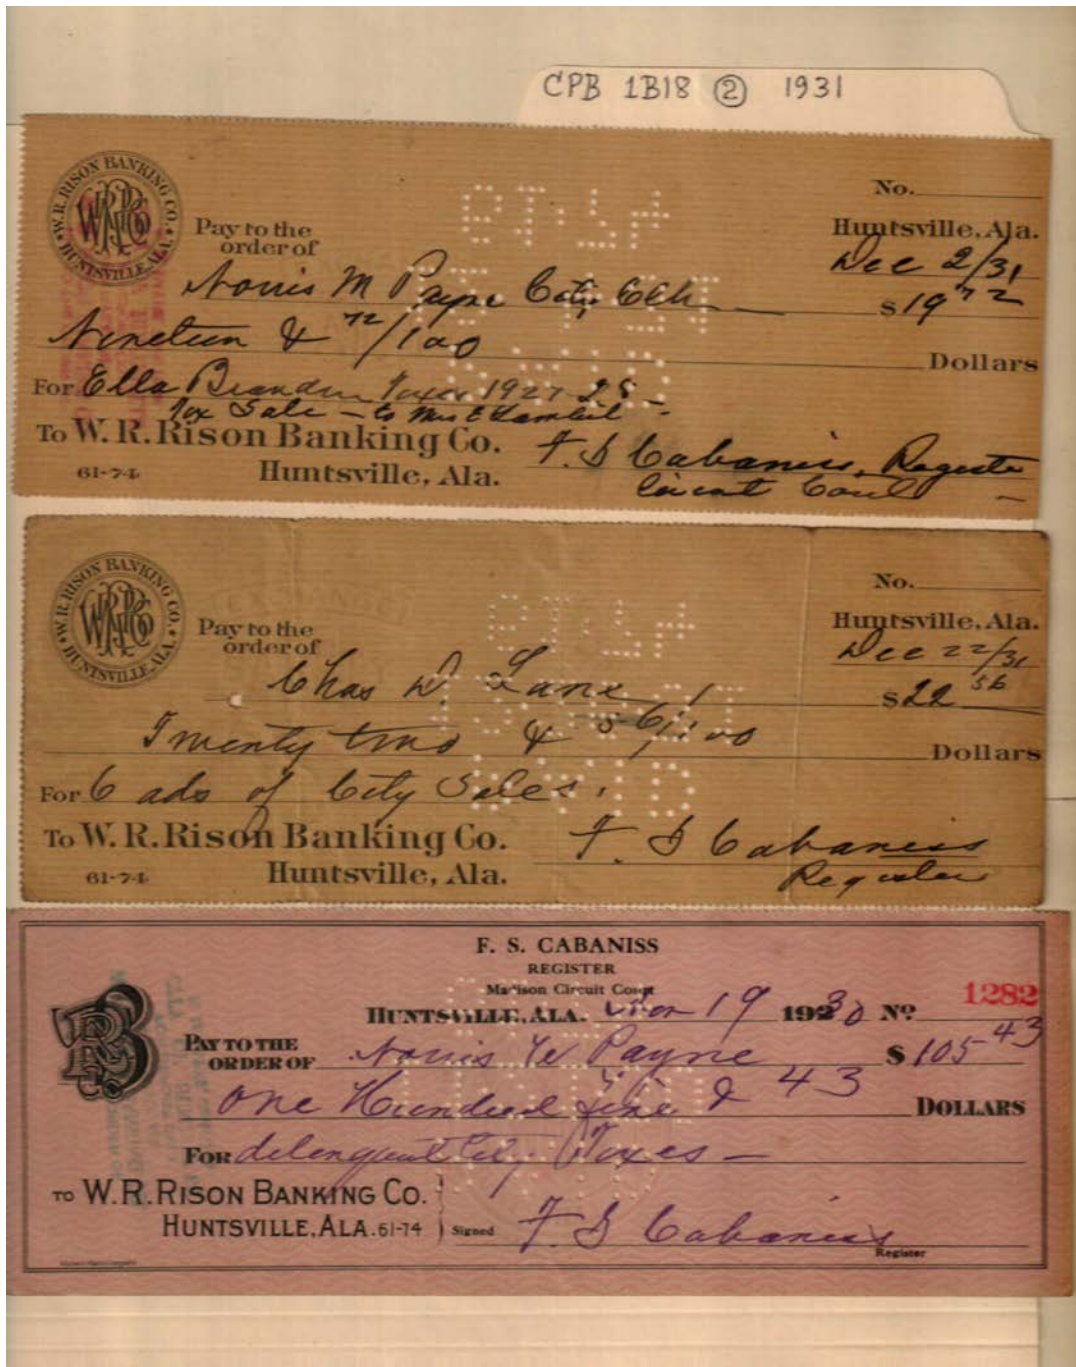 CPB 1B18 ② 1931
W. R. RISON BANKING CO.
HUNTSVILLE, ALA.
No.
Huntsville, Ala.
Dec 2/31
Pay to the
order of
Payne City Clk
$ 19 72
Nineteen & 72/100
Dollars
For Ella Brandon Taxes 1927-28 -
Tax Sale - to Mrs E
To W. R. Rison Banking Co.
F. S Cabaniss, Register
61-74
Huntsville, Ala.
Circuit Court
W. R. RISON BANKING CO.
HUNTSVILLE, ALA.
EXCHANGE
No.
Huntsville, Ala.
Dec 22/31
Pay to the
order of
Chas D. Lane
$ 22 56
Twenty two & 56/100
Dollars
For 6 ads of City Sales.
To W. R. Rison Banking Co.
F. S Cabaniss
61-74
Huntsville, Ala.
Register
F. S. CABANISS
REGISTER
Madison Circuit Court
1282
HUNTSVILLE, ALA. 19 1930 No
PAY TO THE
ORDER OF
Payne
$ 105 43
One Hundred five & 43
DOLLARS
FOR delinquent City Taxes -
TO W. R. RISON BANKING CO.
HUNTSVILLE, ALA. 61-74
Signed F. S Cabaniss
Register